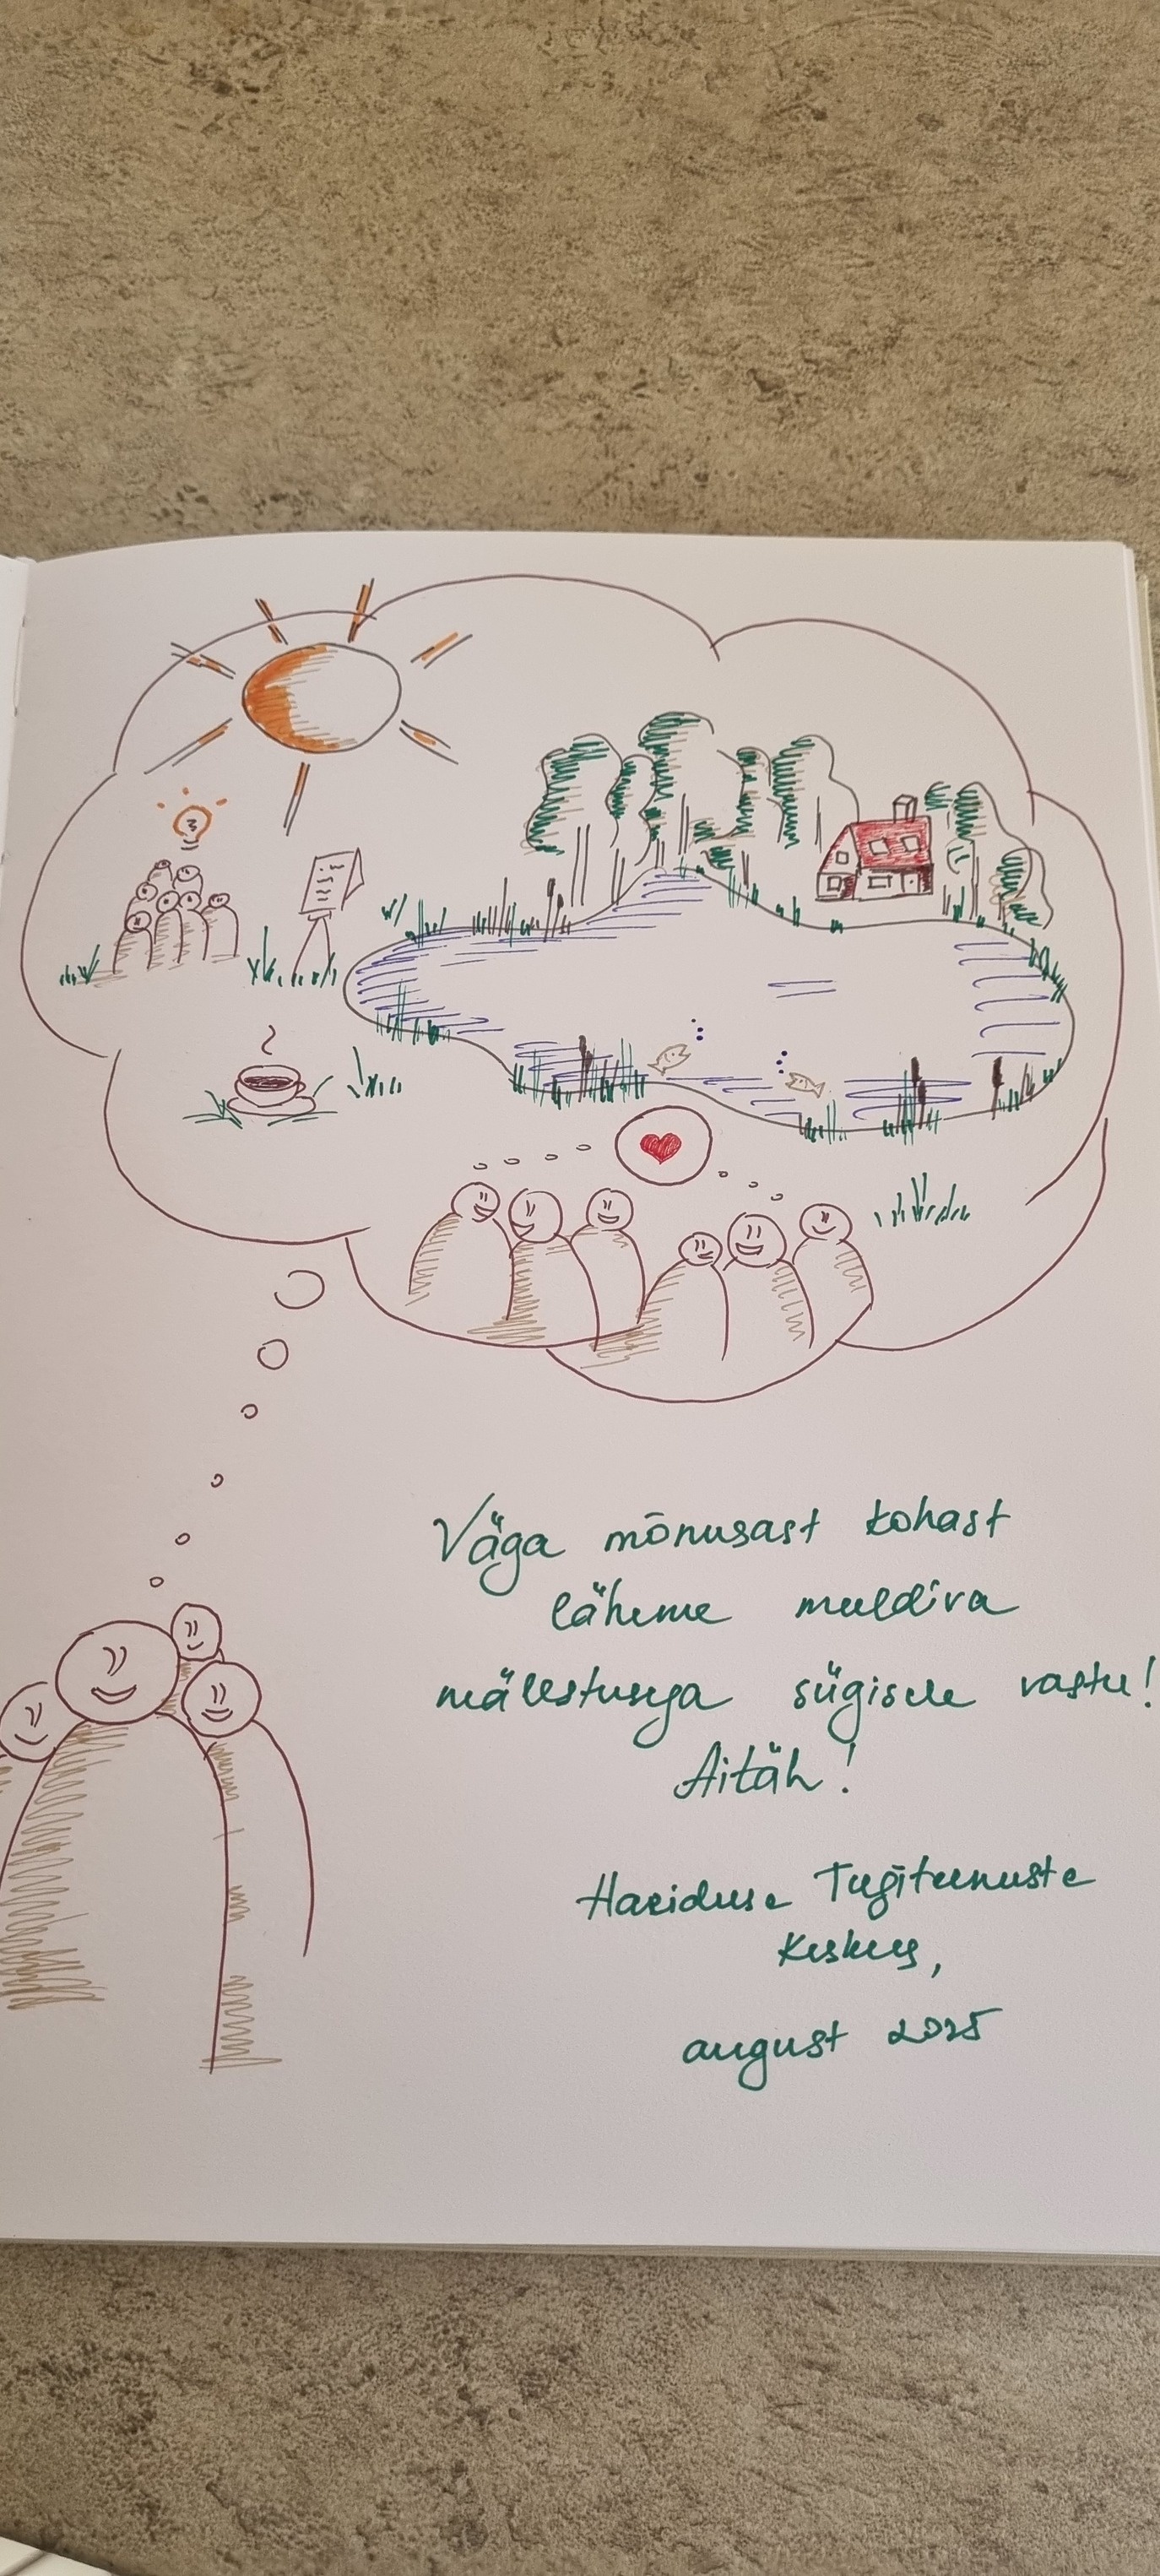 Väga mõnusast kohast
läheme meeldiva
mälestusega sügisele vastu!
Aitäh!
Hariduse Tugiteenuste
Keskus,
august 2025